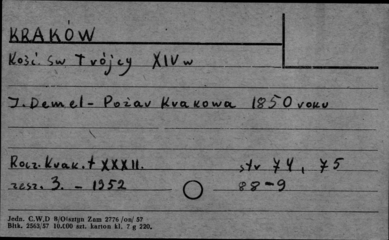 KRAKÓW
Kość. św Trójcy XIV w
J. Demel - Pożar Krakowa 1850 roku
Rocz. Krak. t XXXII. str 74, 75
zesz. 3. - 1952 88-9
Jedn. C.W.D 8/Olsztyn Zam 2776/on/57
Bltk. 2563/57 10.000 szt. karton kl. 7 g 220.